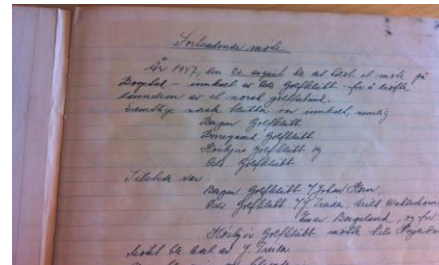 Forberedende møte
År 1947, den 20. august ble det holdt et møte på
Bogstad – innkalt av Oslo Golfklubb – for å drøfte
dannelsen av et norsk golfforbund.
Samtlige norske klubber var innkalt, nemlig
Bergen Golfklubb
Borregaard Golfklubb
Hosbjør Golfklubb og
Oslo Golfklubb
Tilstede var:
Bergen Golfklubb v/Johan Horn,
Oslo Golfklubb v/
Einar Bergsland, og for
Hosbjør Golfklubb møtte
Møtet ble ledet av